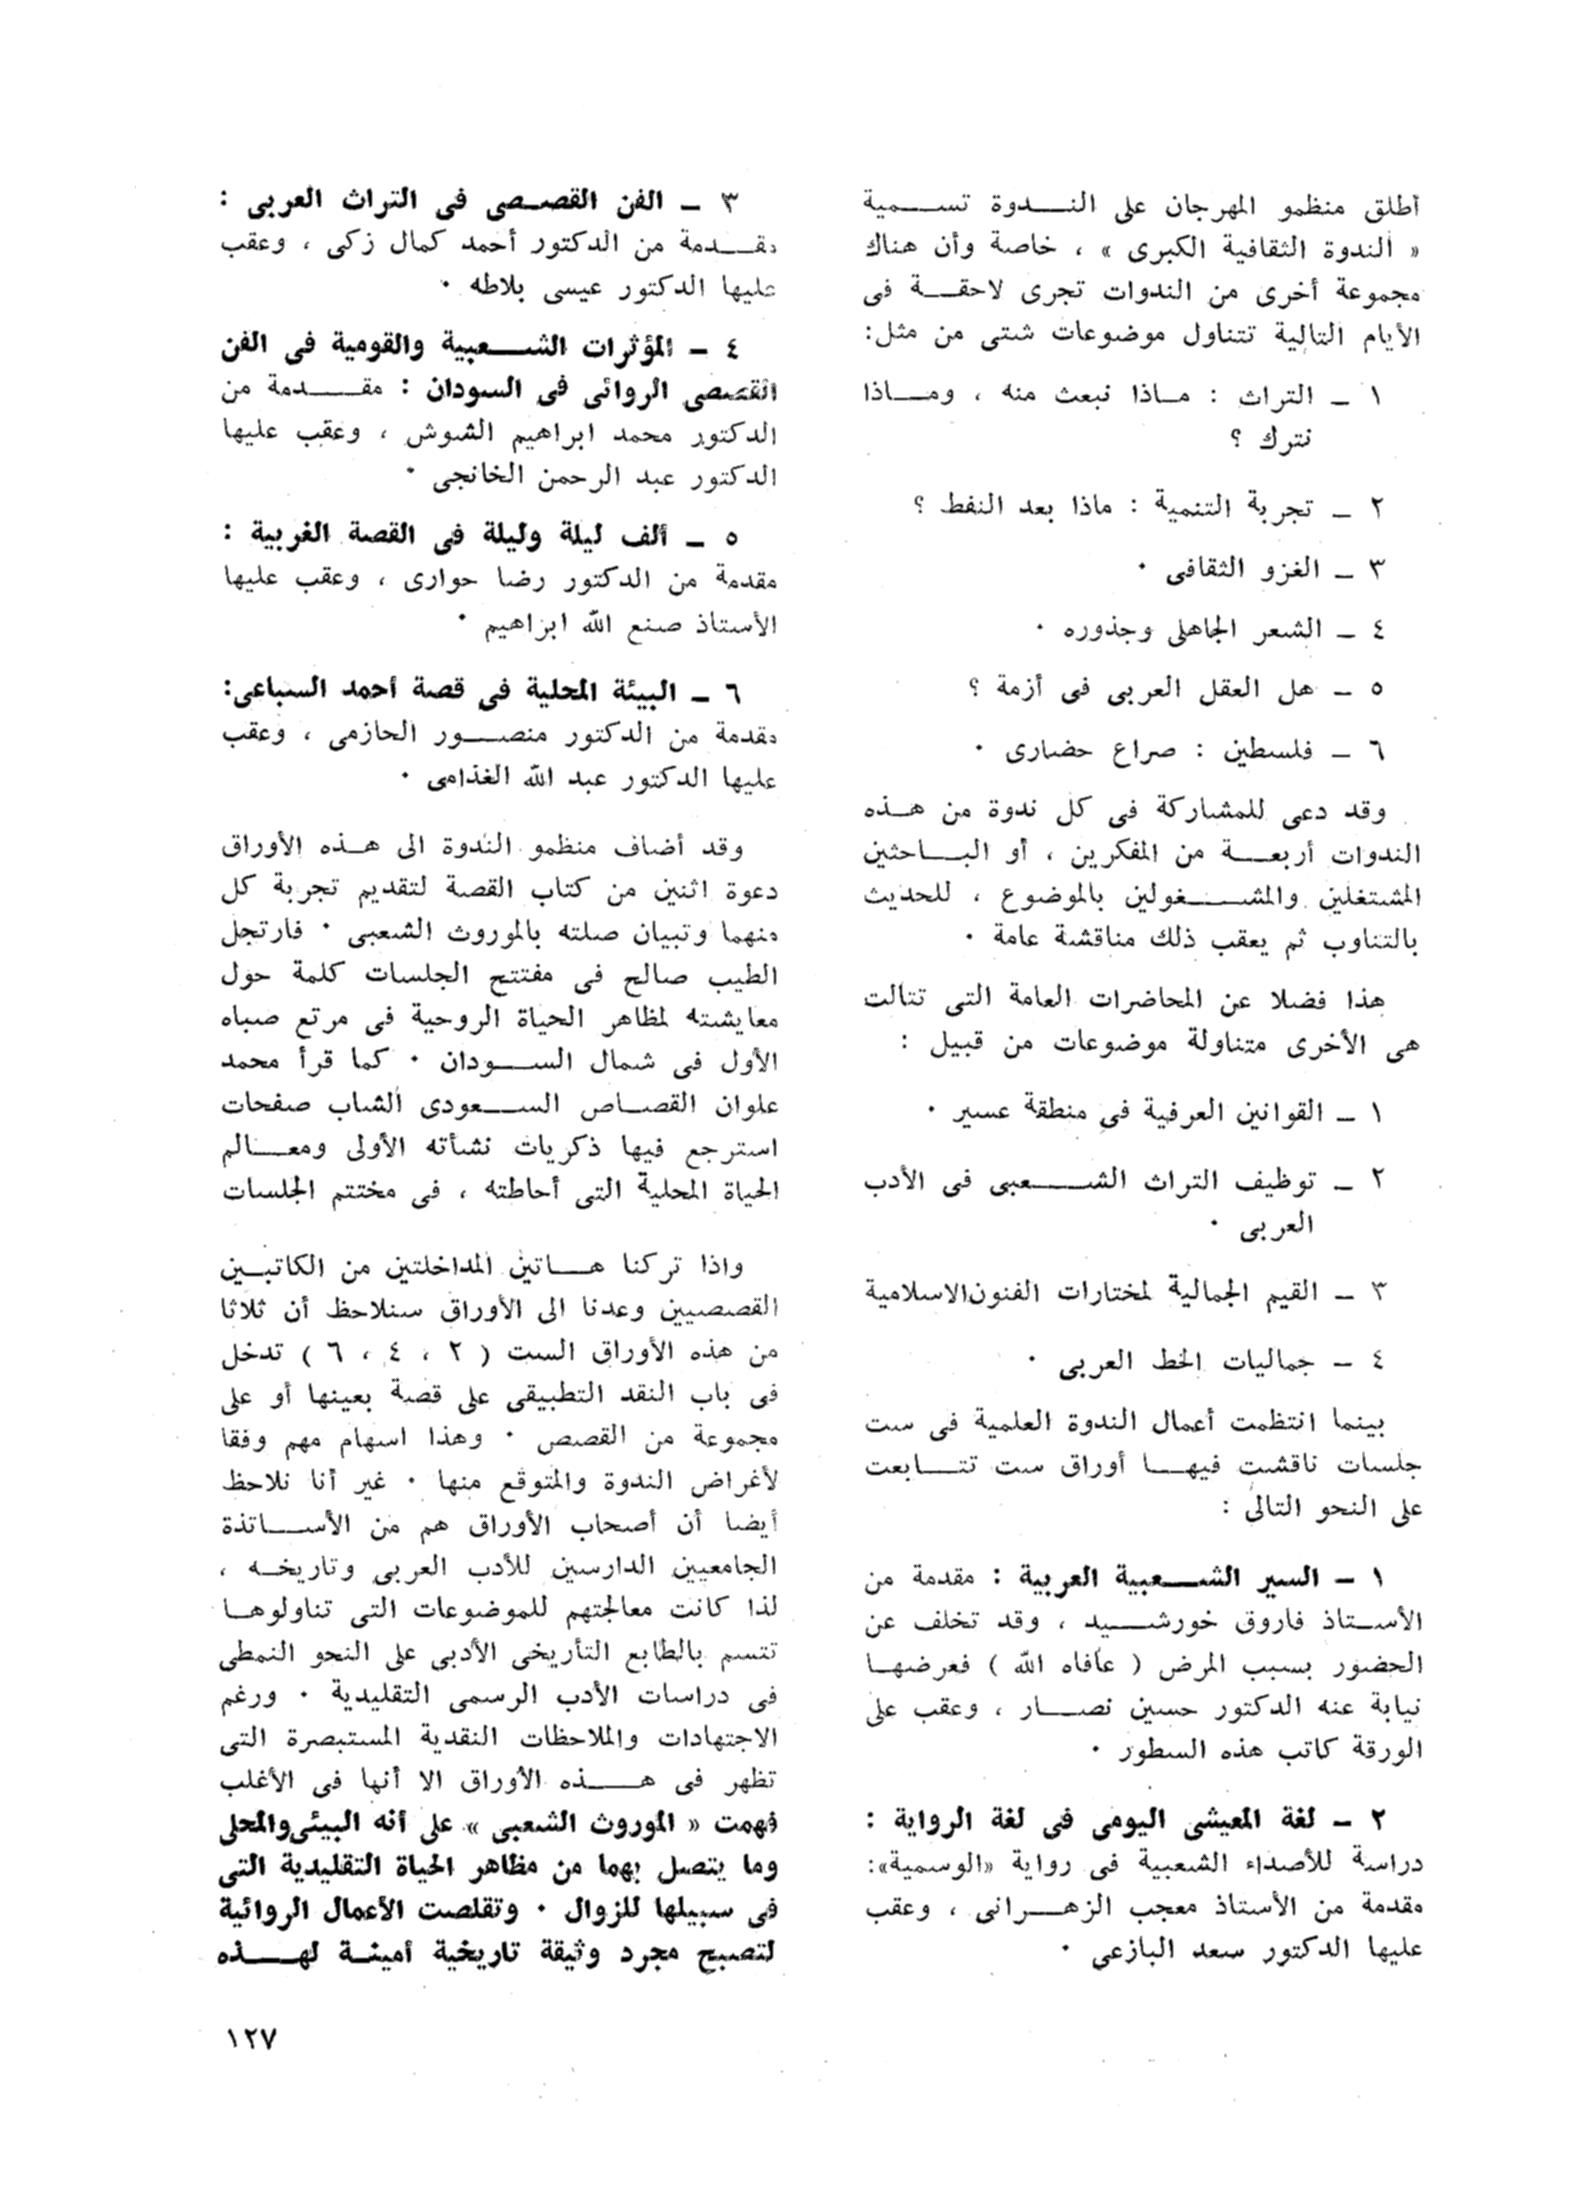 أطلق منظمو المهرجان على الندوة تسمية
« الندوة الثقافية الكبرى » ، خاصة وأن هناك
مجموعة أخرى من الندوات تجرى لاحقة فى
الأيام التالية تتناول موضوعات شتى من مثل:
١ ـ التراث : ماذا نبعث منه ، وماذا
نترك ؟
٢ ـ تجربة التنمية : ماذا بعد النفط ؟
٣ ـ الغزو الثقافى ٠
٤ ـ الشعر الجاهلى وجذوره ٠
٥ ـ هل العقل العربى فى أزمة ؟
٦ ـ فلسطين : صراع حضارى ٠
وقد دعى للمشاركة فى كل ندوة من هذه
الندوات أربعة من المفكرين ، أو الباحثين
المشتغلين والمشغولين بالموضوع ، للحديث
بالتناوب ثم يعقب ذلك مناقشة عامة ٠
هذا فضلا عن المحاضرات العامة التى تتالت
هى الأخرى متناولة موضوعات من قبيل :
١ ـ القوانين العرفية فى منطقة عسير ٠
٢ ـ توظيف التراث الشعبى فى الأدب
العربى ٠
٣ ـ القيم الجمالية لمختارات الفنون الاسلامية
٤ ـ جماليات الخط العربى ٠
بينما انتظمت أعمال الندوة العلمية فى ست
جلسات ناقشت فيها أوراق ست تتابعت
على النحو التالى :
١ ـ السير الشعبية العربية : مقدمة من
الأستاذ فاروق خورشيد ، وقد تخلف عن
الحضور بسبب المرض ( عافاه الله ) فعرضها
نيابة عنه الدكتور حسين نصار ، وعقب على
الورقة كاتب هذه السطور ٠
٢ ـ لغة المعيشى اليومى فى لغة الرواية :
دراسة للأصداء الشعبية فى رواية «الوسمية»:
مقدمة من الأستاذ معجب الزهرانى ، وعقب
عليها الدكتور سعد البازعى ٠
٣ ـ الفن القصصى فى التراث العربى :
مقدمة من الدكتور أحمد كمال زكى ، وعقب
عليها الدكتور عيسى بلاطه ٠
٤ ـ المؤثرات الشعبية والقومية فى الفن
القصصى الروائى فى السودان : مقدمة من
الدكتور محمد ابراهيم الشوش ، وعقب عليها
الدكتور عبد الرحمن الخانجى ٠
٥ ـ ألف ليلة وليلة فى القصة الغربية :
مقدمة من الدكتور رضا حوارى ، وعقب عليها
الأستاذ صنع الله ابراهيم ٠
٦ ـ البيئة المحلية فى قصة أحمد السباعى:
مقدمة من الدكتور منصور الحازمى ، وعقب
عليها الدكتور عبد الله الغذامى ٠
وقد أضاف منظمو الندوة الى هذه الأوراق
دعوة اثنين من كتاب القصة لتقديم تجربة كل
منهما وتبيان صلته بالموروث الشعبى ٠ فارتجل
الطيب صالح فى مفتتح الجلسات كلمة حول
معايشته لمظاهر الحياة الروحية فى مرتع صباه
الأول فى شمال السودان ٠ كما قرأ محمد
علوان القصاص السعودى الشاب صفحات
استرجع فيها ذكريات نشأته الأولى ومعالم
الحياة المحلية التى أحاطته ، فى مختتم الجلسات
واذا تركنا هاتين المداخلتين من الكاتبين
القصصيين وعدنا الى الأوراق سنلاحظ أن ثلاثا
من هذه الأوراق الست ( ٢ ، ٤ ، ٦ ) تدخل
فى باب النقد التطبيقى على قصة بعينها أو على
مجموعة من القصص ٠ وهذا اسهام مهم وفقا
لأغراض الندوة والمتوقع منها ٠ غير أنا نلاحظ
أيضا أن أصحاب الأوراق هم من الأساتذة
الجامعيين الدارسين للأدب العربى وتاريخه ،
لذا كانت معالجتهم للموضوعات التى تناولوها
تتسم بالطابع التأريخى الأدبى على النحو النمطى
فى دراسات الأدب الرسمى التقليدية ٠ ورغم
الاجتهادات والملاحظات النقدية المستبصرة التى
تظهر فى هذه الأوراق الا أنها فى الأغلب
فهمت « الموروث الشعبى » على أنه البيئى والمحلى
وما يتصل بهما من مظاهر الحياة التقليدية التى
فى سبيلها للزوال ٠ وتقلصت الأعمال الروائية
لتصبح مجرد وثيقة تاريخية أمينة لهذه
١٢٧